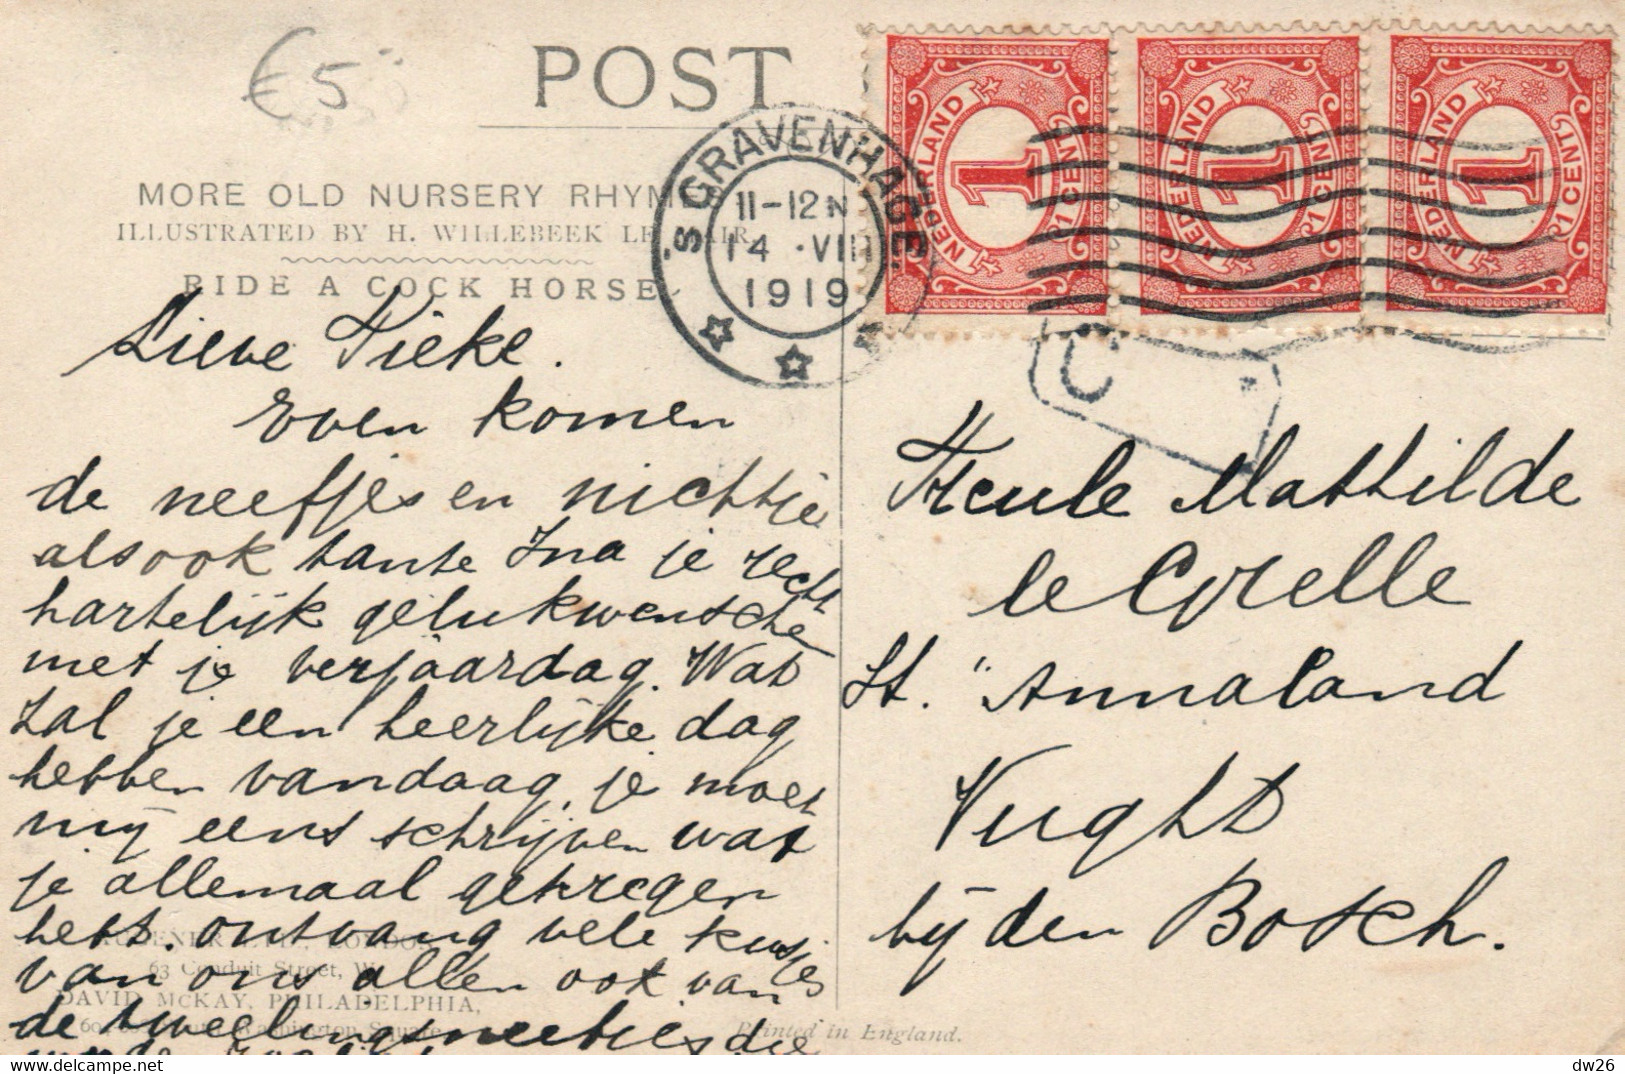 €5
POST
MORE OLD NURSERY RHYMES
ILLUSTRATED BY H. WILLEBEEK LE MAIR
RIDE A COCK HORSE
'S GRAVENHAGE
11-12 N
14 .VIII
1919
NEDERLAND 1 1 CENT
NEDERLAND 1 1 CENT
NEDERLAND 1 1 CENT
C
Lieve Tieke.
Even komen
de neefjes en nichtje
alsook tante Ina je recht
hartelijk gelukwensche
met je verjaardag. Wat
zal je een heerlijke dag
hebben vandaag, je moet
mij eens schrijven wat
je allemaal gekregen
hebt. ontvang vele kusjes
van ons allen ook van
de tweelingsneefjes die
Freule Mathilde
le
St. Annaland
Vught
bij den Bosch.
LONDON
63 Conduit Street, W.
DAVID McKAY, PHILADELPHIA,
Washington Square
Printed in England.
dw26